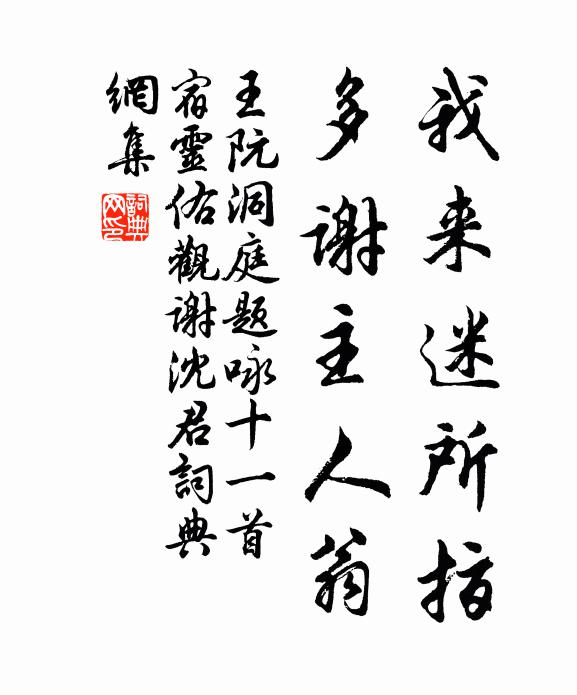 我来迷所指
多谢主人翁
王阮洞庭题咏十一首
宿靈佑觀谢沈君詞典
網集
詞典网印